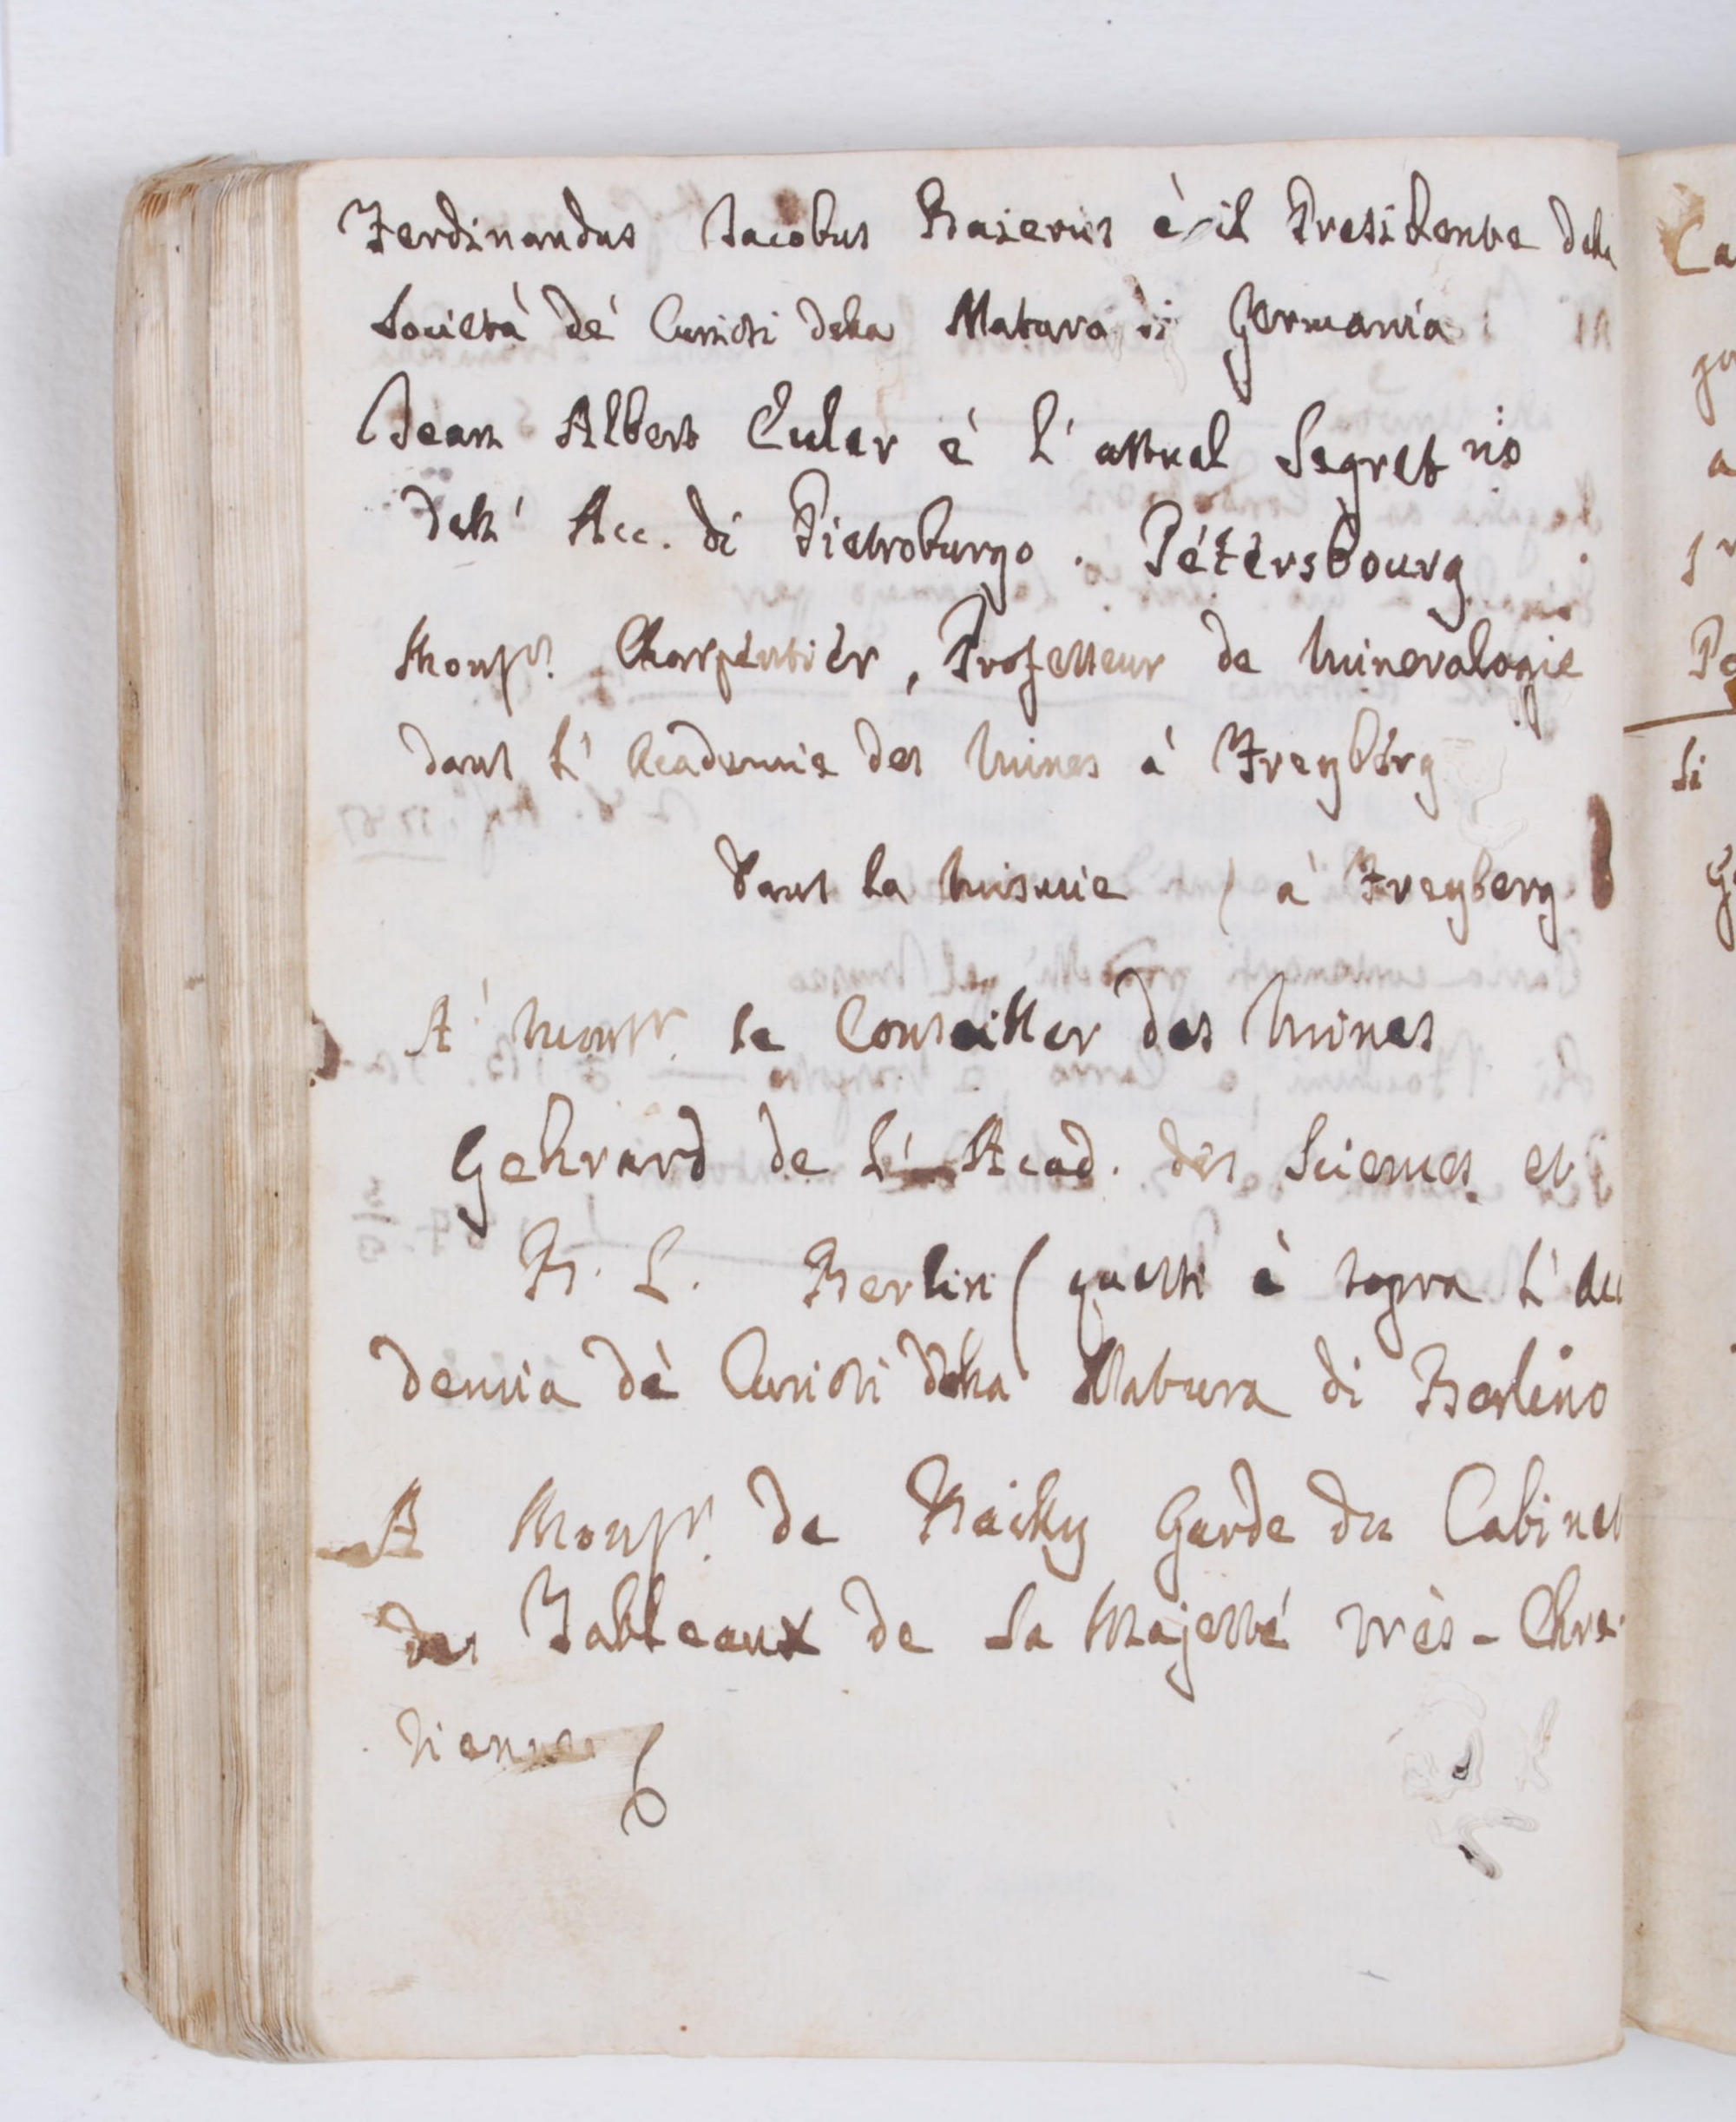 Ferdinandus Iacobus Baierus è il Presidente della
Società de' Curiosi della Natura di Germania
Jean Albert Euler è l'attual Segretrio
dell' Acc. di Pietroburgo. Pétérsbourg
Monsr. Charpentiér, Professeur de Mineralogie
dans l'Academie des Mines à Freybérg
dans la Misnie / a Freyberg
A' Monsr. le Conseiller des Mines
Gehrard de l'Acad. des Sciences et
B. L. Berlin ( questi è sopra l'Acc
demia de Curiosi della Natura di Berlino
A Monsr. de Bailly Garde du Cabinet
des Tableaux de Sa Majesté très-Chre-
tienne
Ca
a
Po
Si